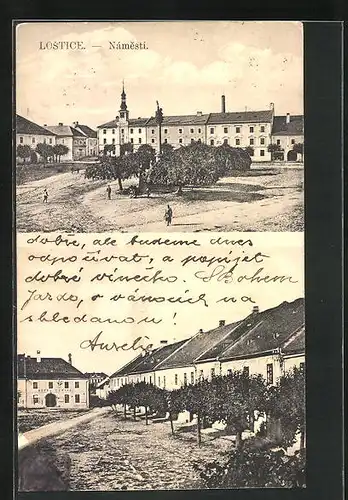 LOSTICE. — Náměstí.
dobře, ale budeme dnes
odpočívat, a popíjet
dobré vínečko. S Bohem
o vánocích na
shledanou!